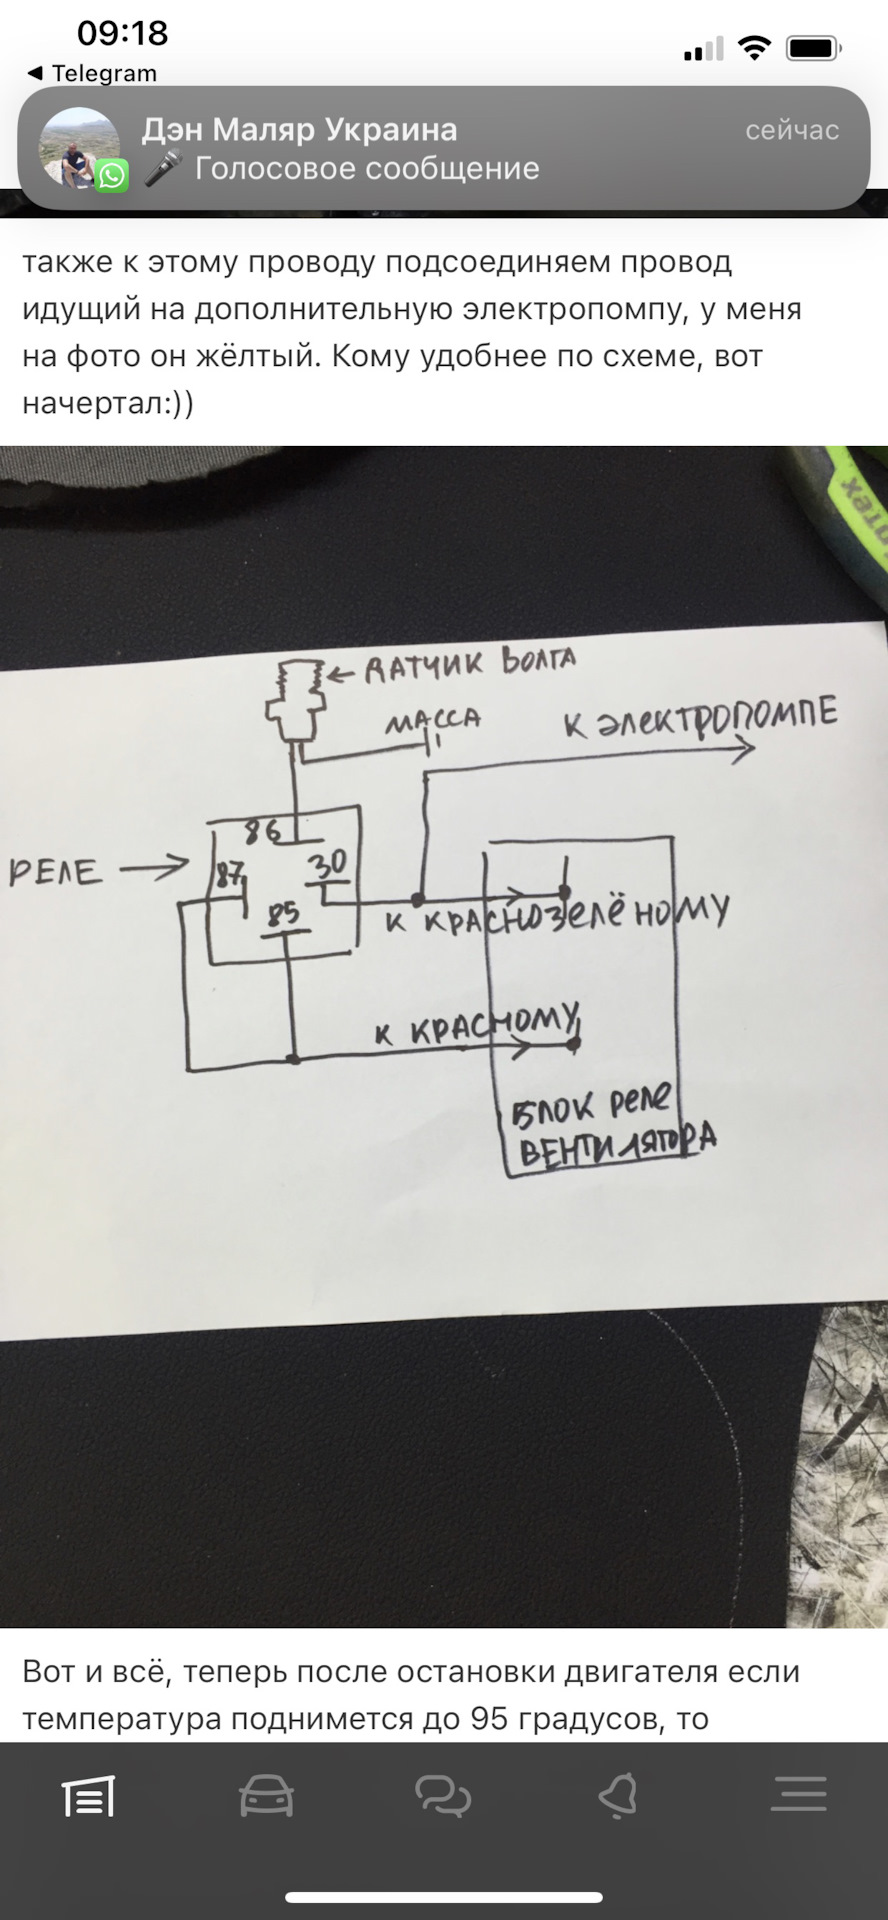 09:18
Telegram
Дэн Маляр Украина
сейчас
Голосовое сообщение
также к этому проводу подсоединяем провод
идущий на дополнительную электропомпу, у меня
на фото он жёлтый. Кому удобнее по схеме, вот
начертал:))
ДАТЧИК ВОЛГА
МАССА
К ЭЛЕКТРОПОМПЕ
86
РЕЛЕ
87
30
85
К КРАСНОЗЕЛЁНОМУ
К КРАСНОМУ
БЛОК РЕЛЕ
ВЕНТИЛЯТОРА
Вот и всё, теперь после остановки двигателя если
температура поднимется до 95 градусов, то